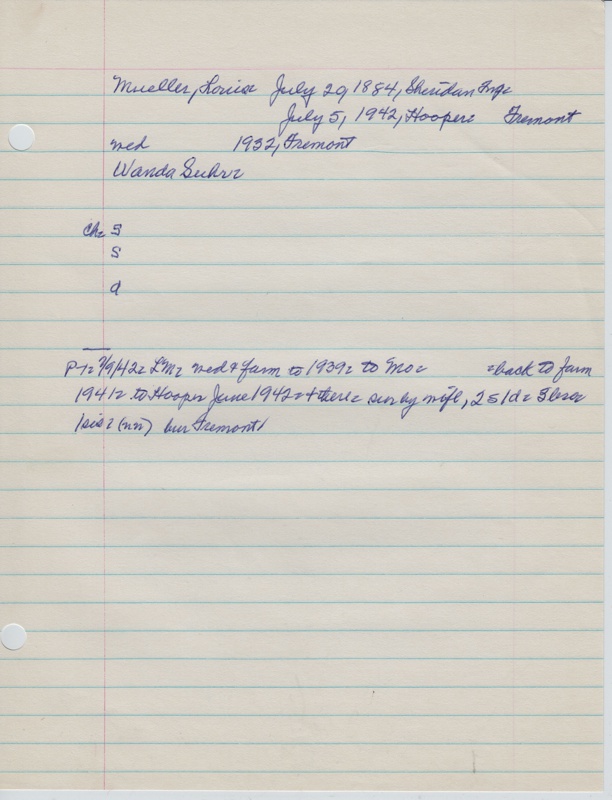 Mueller, Louis= July 29 1884, Sheridan Twp=
July 5, 1942, Hooper= Fremont
med 1932, Fremont
Wanda Suhr=
ch= s
s
d
P T= 7/9/42= LM= med & farm to 1939= to Mo= =back to farm
1941= to Hooper June 1942= + there= sur by wife, 2 s 1 d= 3 bros=
1 sis= (nn) bur Fremont/